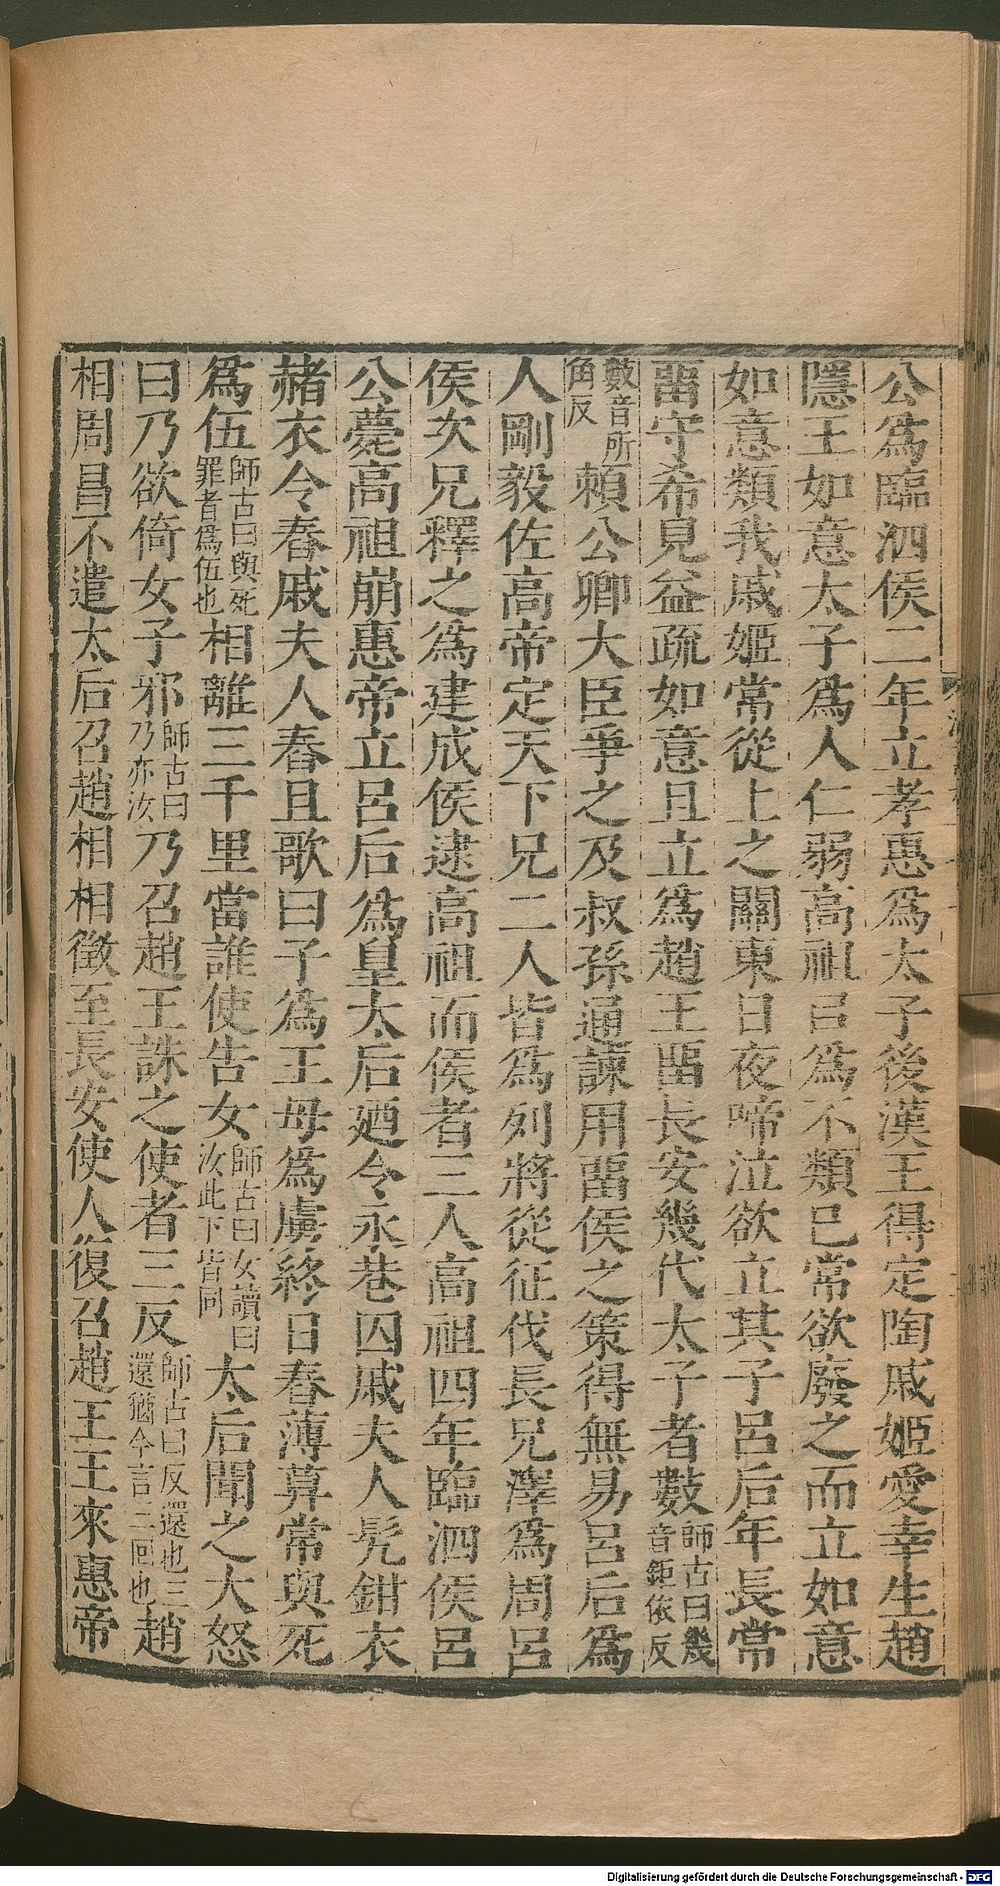 公爲臨泗侯二年立孝惠爲太子後漢王得定陶戚姬愛幸生趙
隱王如意太子爲人仁弱高祖㠯爲不類已常欲廢之而立如意
如意類我戚姬常從上之關東日夜啼泣欲立其子吕后年長常
畱守希見益疏如意且立爲趙王畱長安幾代太子者數師古曰幾音鉅依反
數音所角反賴公卿大臣爭之及叔孫通諫用畱侯之策得無易吕后爲
人剛毅佐高帝定天下兄二人皆爲列將從征伐長兄澤爲周吕
侯次兄釋之爲建成侯逮高祖而侯者三人高祖四年臨泗侯吕
公薨高祖崩惠帝立吕后爲皇太后廼令永巷囚戚夫人髠鉗衣
赭衣令舂戚夫人舂且歌曰子爲王母爲虜終日舂薄暮常與死
爲伍師古曰與死罪者爲伍也相離三千里當誰使告女師古曰女讀曰汝此下皆同太后聞之大怒
曰乃欲倚女子邪師古曰乃亦汝乃召趙王誅之使者三反師古曰反還也三還猶今言三回也趙
相周昌不遣太后召趙相相徵至長安使人復召趙王王來惠帝
Digitalisierung gefördert durch die Deutsche Forschungsgemeinschaft - DFG